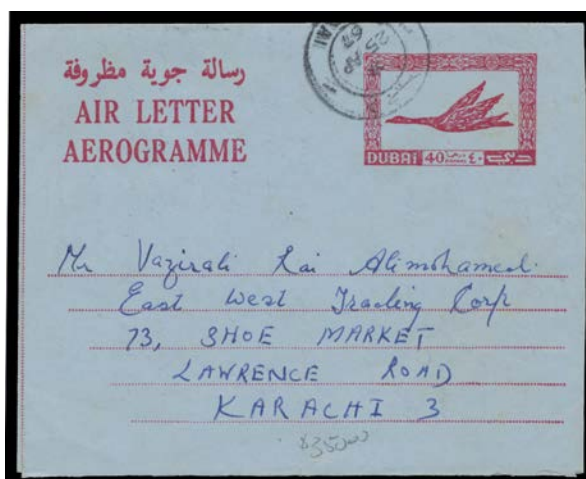 رسالة جوية مظروفة
AIR LETTER
AEROGRAMME
25 AP
67
DUBAI 40 ٤٠ دبي
Mr Vazirali Rai Alimohamed.
East West Trading Corp
73, SHOE MARKET
LAWRENCE ROAD
KARACHI 3